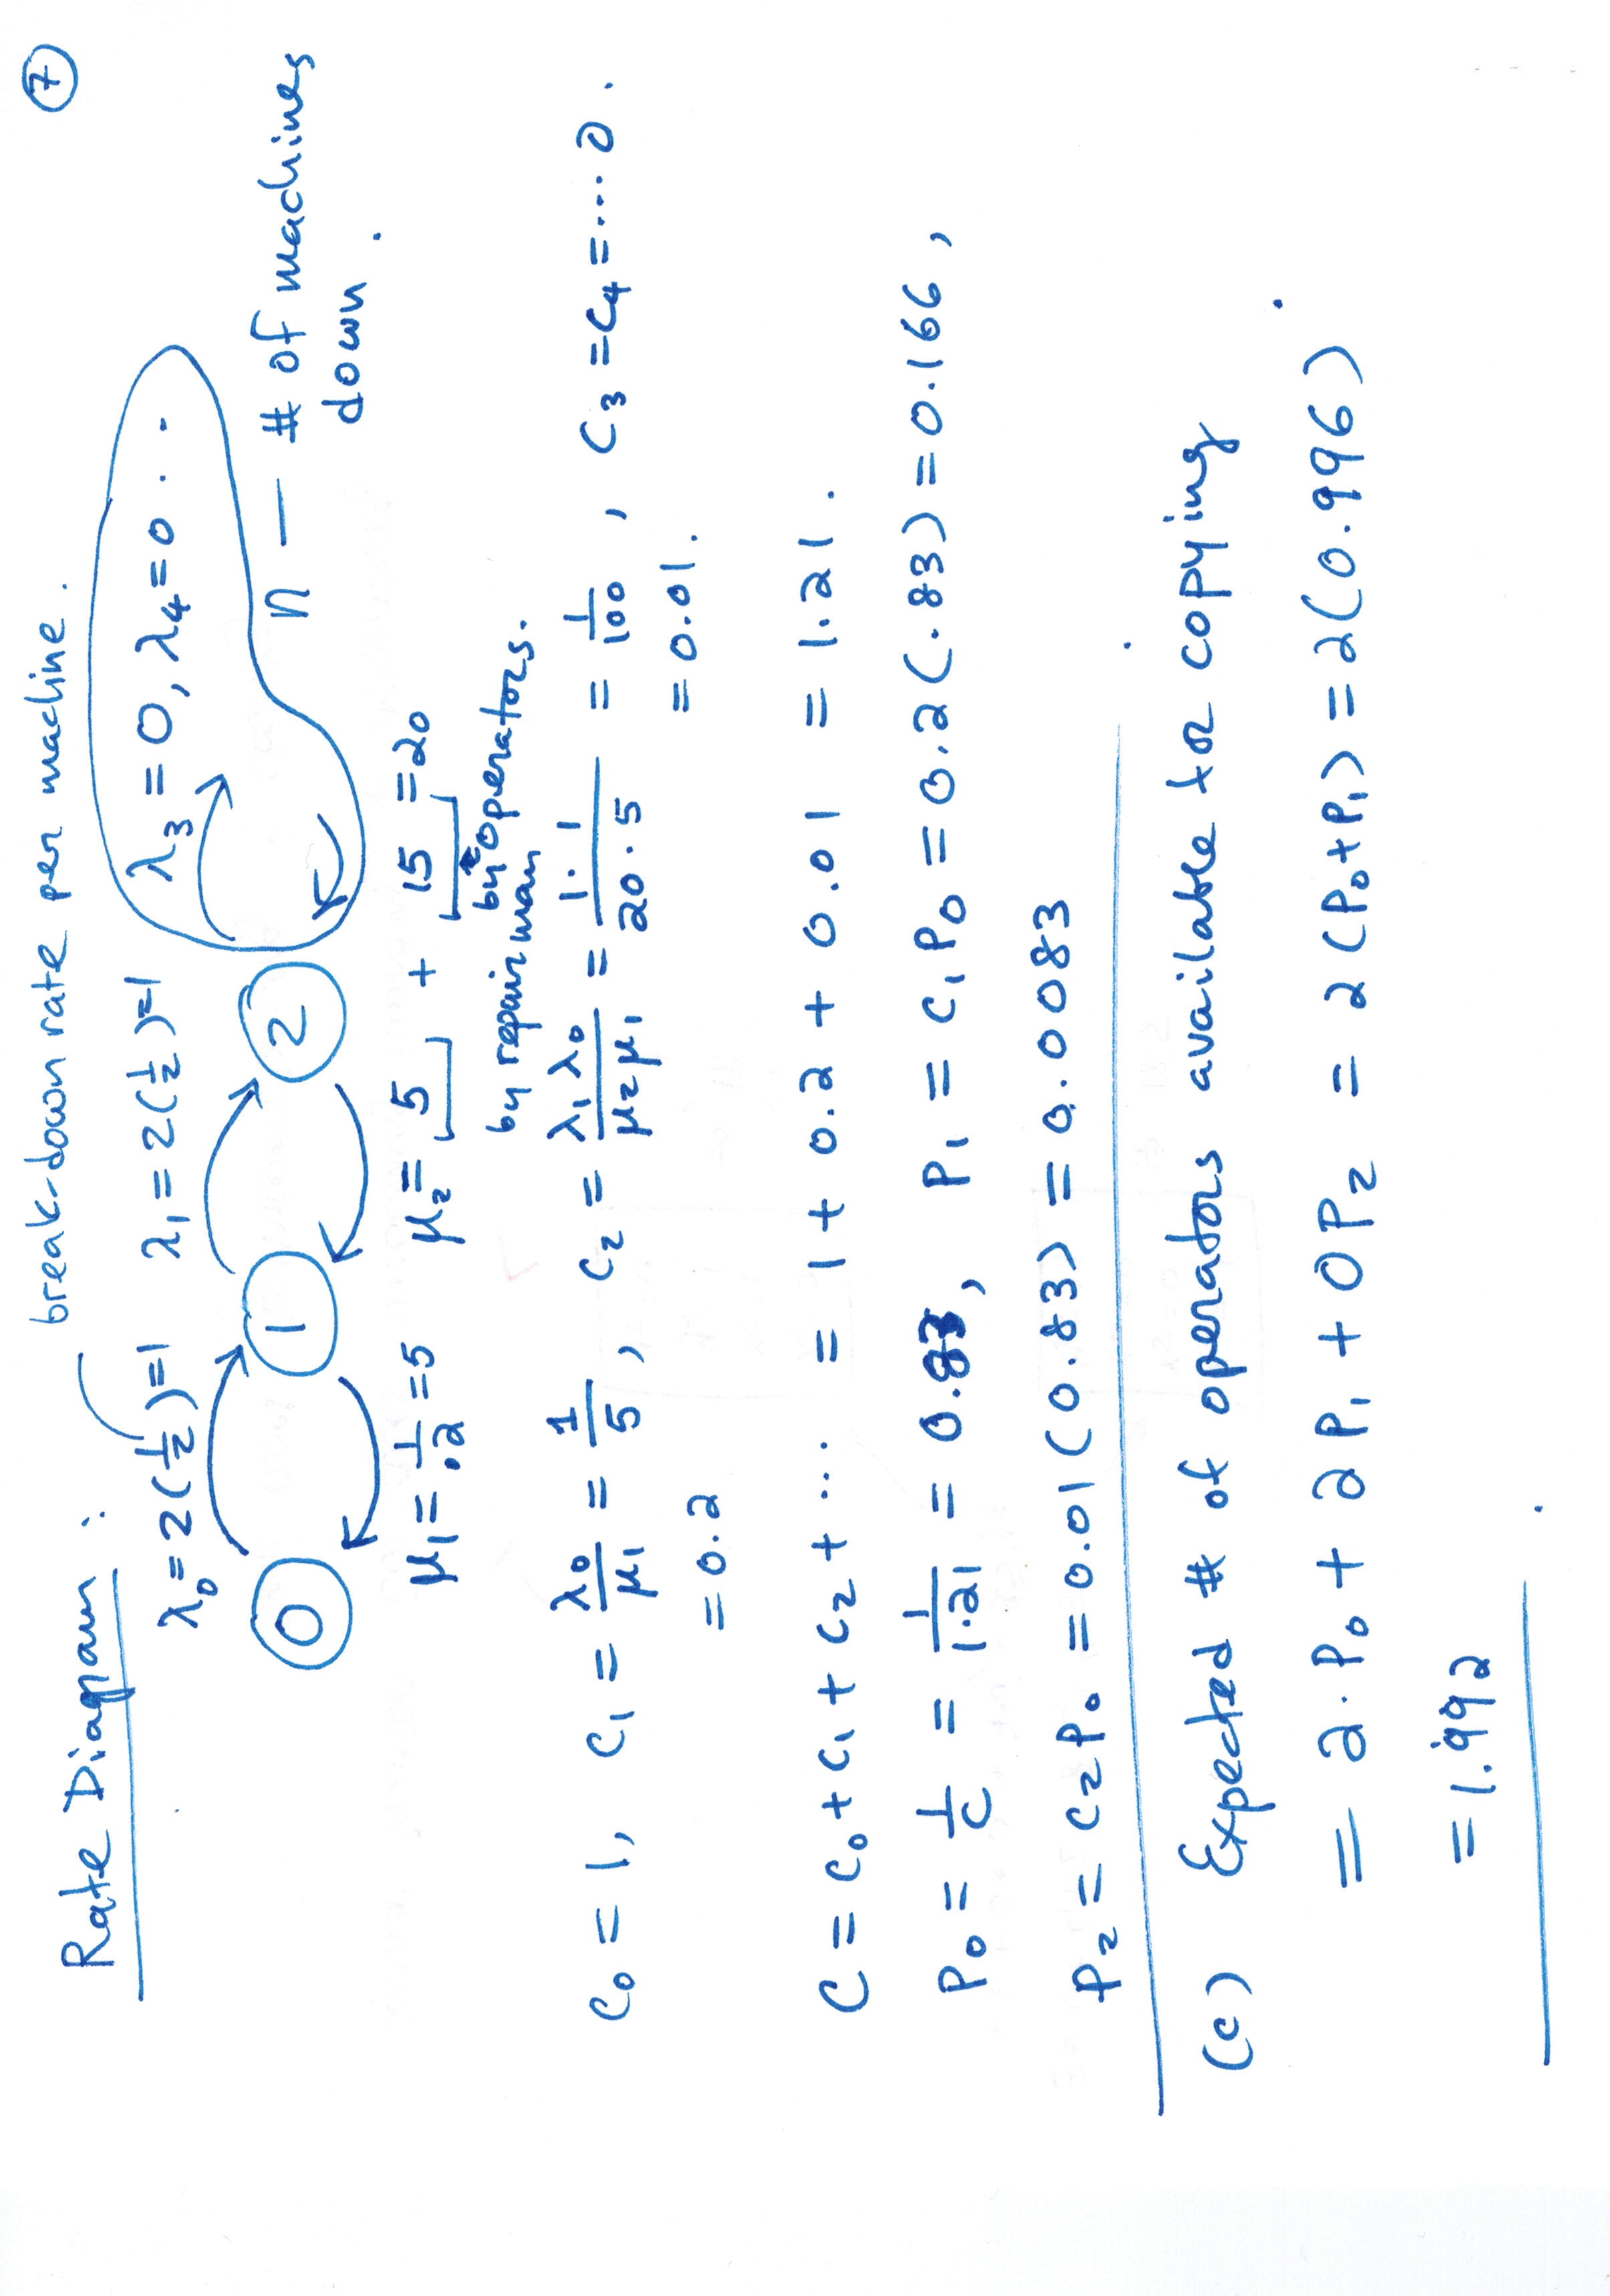 ⑦
break-down rate per machine.
Rate Diagram:
λ₀ = 2(½)=1 λ₁ = 2(½)=1 λ₃ = 0, λ₄ = 0 . . .
0 1 2 n — # of machines down.
μ₁ = 1/.2 = 5 μ₂ = 5 + 15 = 20
by repairman by operators.
C₀ = 1, C₁ = λ₀/μ₁ = 1/5, C₂ = λ₁λ₀/μ₂μ₁ = 1·1/20·5 = 1/100, C₃ = C₄ = .... 0.
= 0.2 = 0.01.
C = C₀ + C₁ + C₂ + ... = 1 + 0.2 + 0.01 = 1.21.
P₀ = 1/C = 1/1.21 = 0.83, P₁ = C₁P₀ = 0.2(.83) = 0.166,
P₂ = C₂P₀ = 0.01(0.83) = 0.0083
(c) Expected # of operators available for copying
= 2·P₀ + 2P₁ + 0P₂ = 2(P₀+P₁) = 2(0.996)
= 1.992